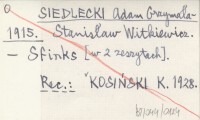 SIEDLECKI Adam Grzymała-
1915. Stanisław Witkiewicz.
– Sfinks [w 2 zeszytach].
Rec.: KOSIŃSKI K. 1928.